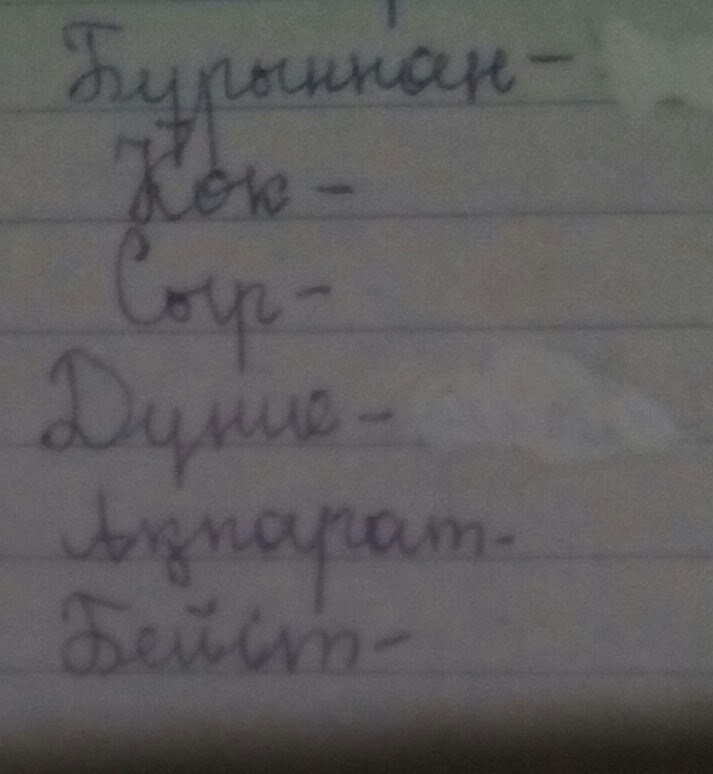 Бурыннан -
Кок -
Сыр -
Дуние -
Ақпарат -
Бейст -